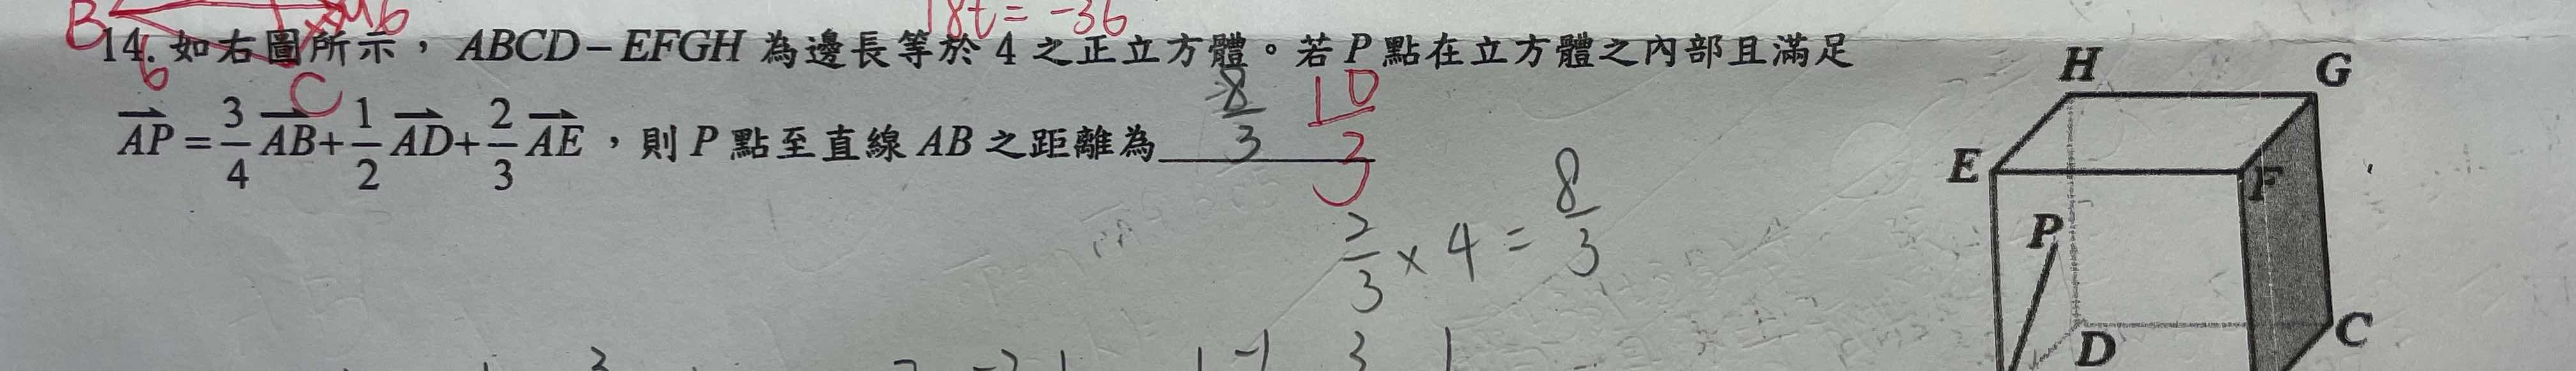 B M 6
18t = -36
14. 如右圖所示，ABCD－EFGH 為邊長等於 4 之正立方體。若 P 點在立方體之內部且滿足
6 C
AP = 3/4 AB + 1/2 AD + 2/3 AE，則 P 點至直線 AB 之距離為 8/3 10/3
2/3 × 4 = 8/3
H G
E F
P
D C
3 1 -1 3 1